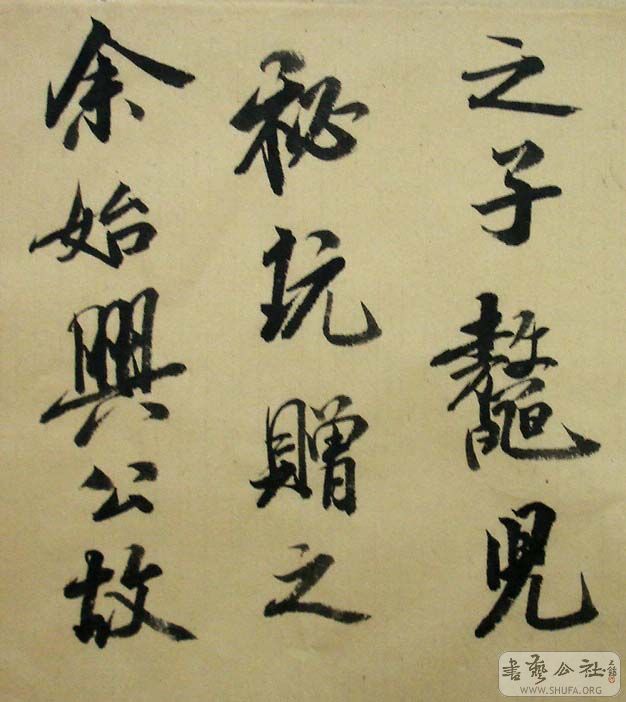 之子鼇兒
秘玩贈之
余始興公故
書藝公社
WWW.SHUFA.ORG